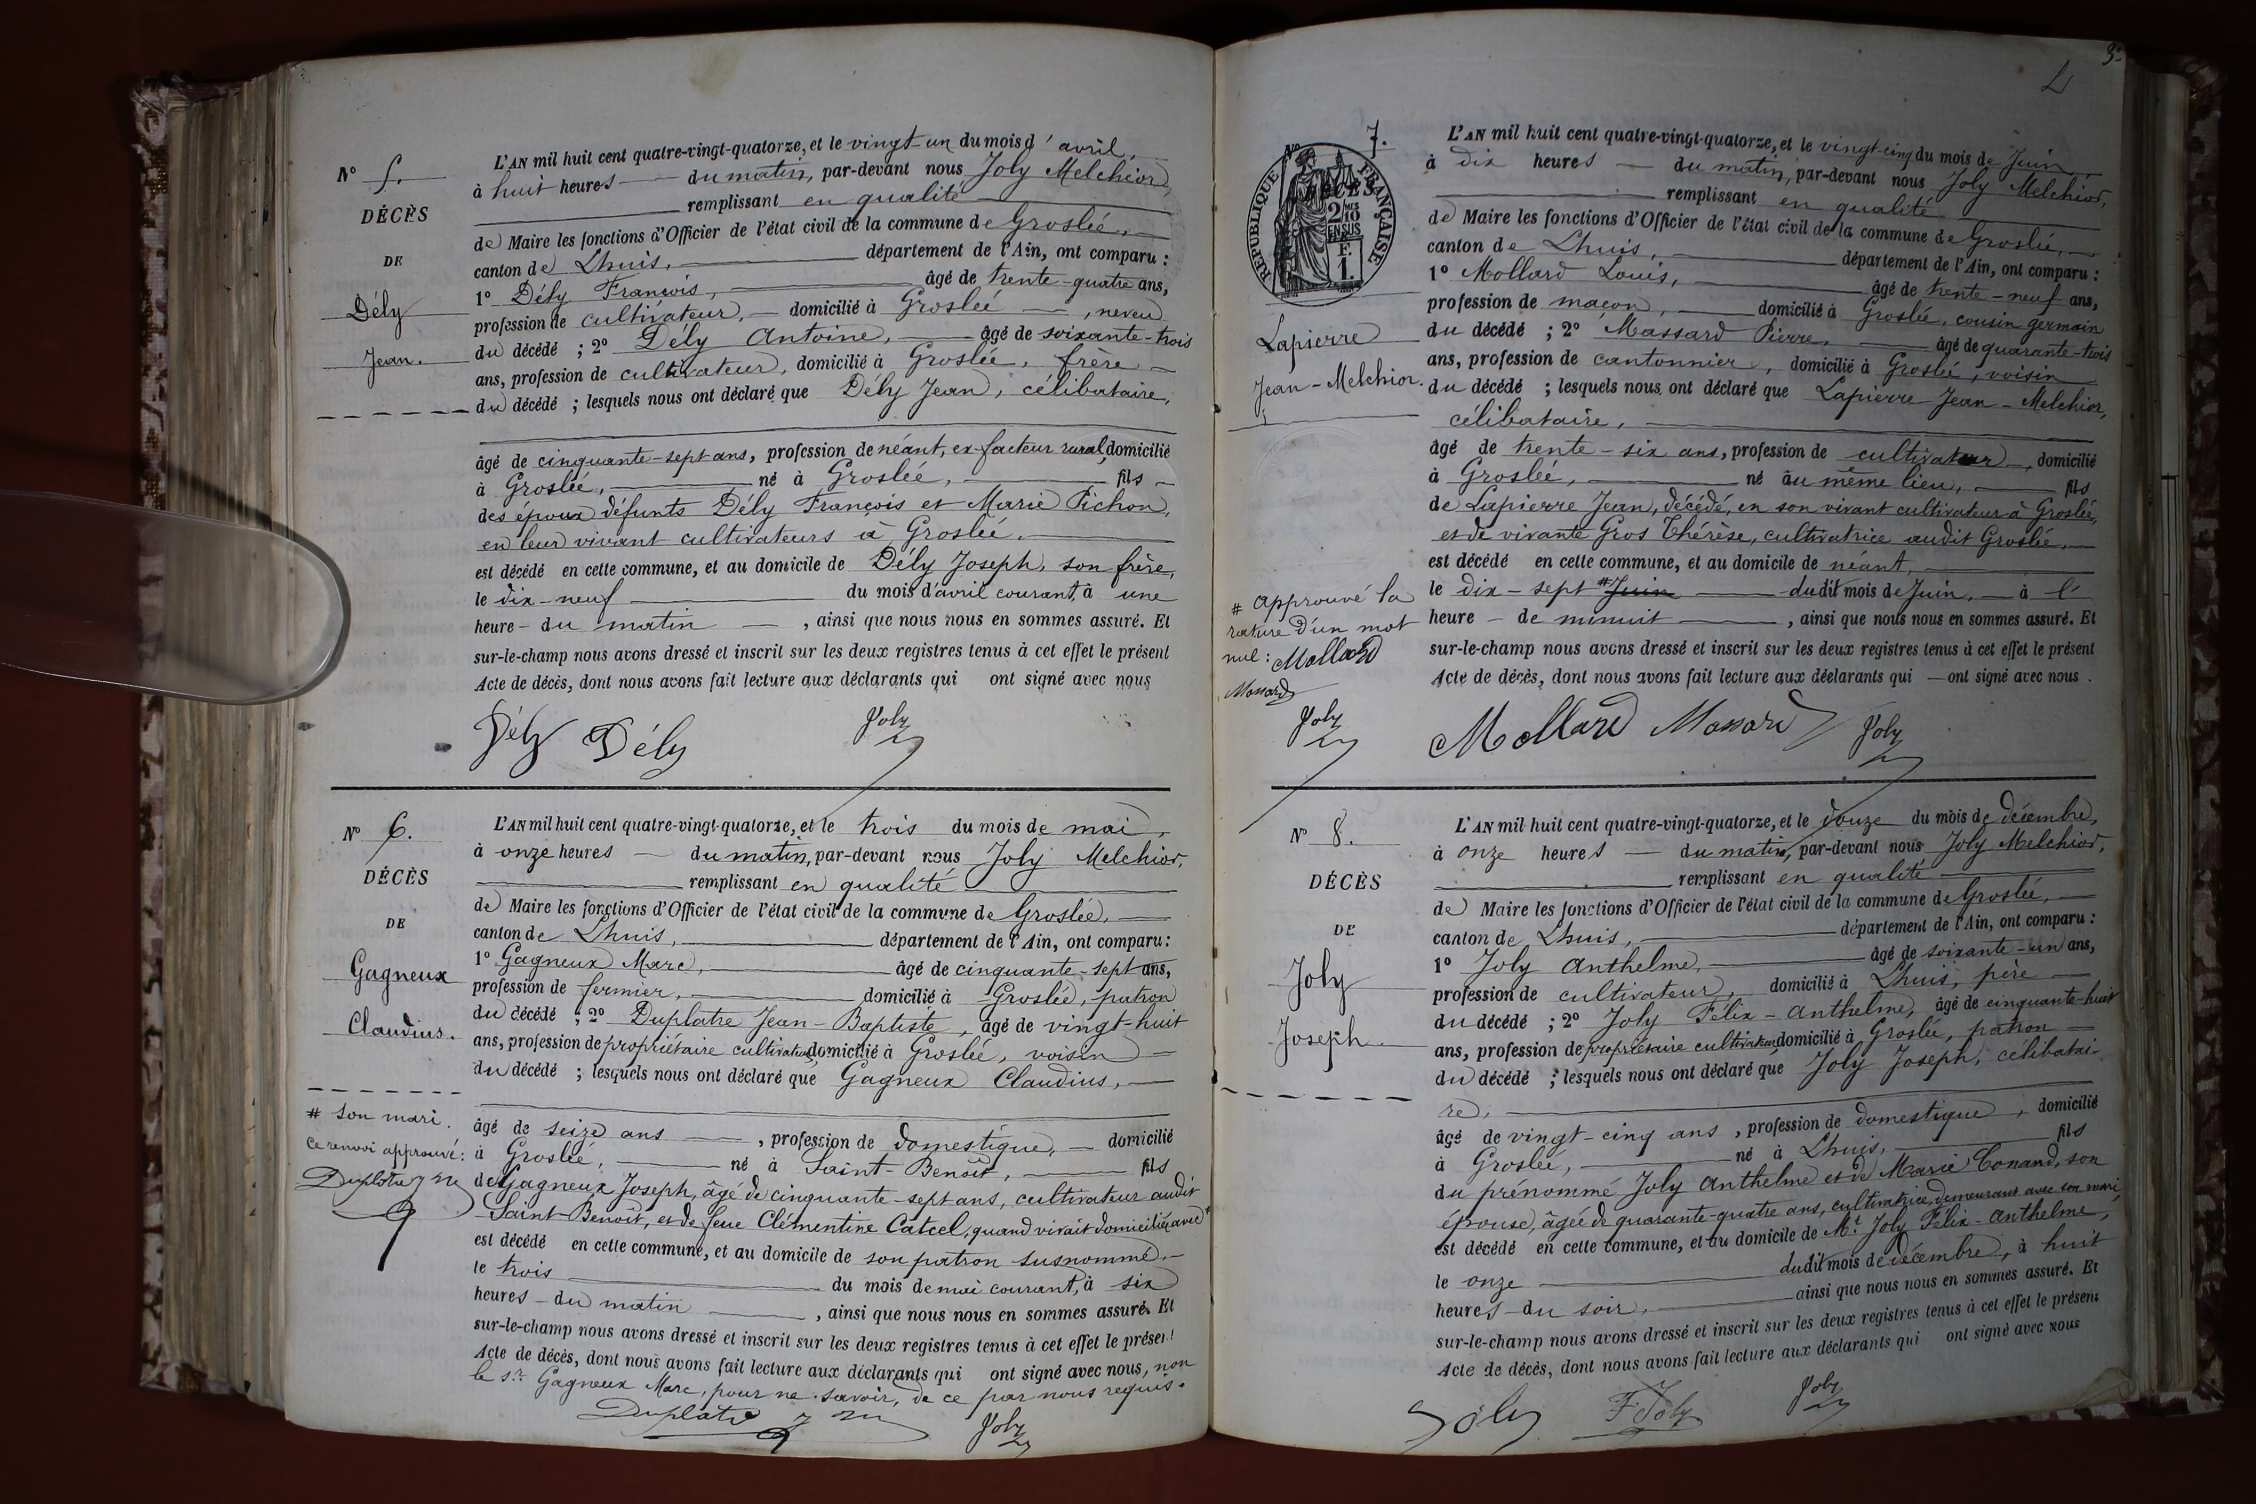 N° 5.
DÉCÈS
DE
Dély
Jean.
L'AN mil huit cent quatre-vingt-quatorze, et le vingt-un du mois d'avril,
à huit heures du matin, par-devant nous Joly Melchior,
remplissant en qualité
de Maire les fonctions d'Officier de l'état civil de la commune de Groslée,
canton de Lhuis, département de l'Ain, ont comparu :
1° Dély François, âgé de trente-quatre ans,
profession de cultivateur, domicilié à Groslée, neveu
du décédé ; 2° Dély Antoine, âgé de soixante-trois
ans, profession de cultivateur, domicilié à Groslée, frère
du décédé ; lesquels nous ont déclaré que Dély Jean, célibataire,
âgé de cinquante-sept ans, profession de néant, ex-facteur rural, domicilié
à Groslée, né à Groslée, fils
des époux défunts Dély François et Marie Pichon,
en leur vivant cultivateurs à Groslée.
est décédé en cette commune, et au domicile de Dély Joseph, son frère,
le dix-neuf du mois d'avril courant, à une
heure du matin, ainsi que nous nous en sommes assuré. Et
sur-le-champ nous avons dressé et inscrit sur les deux registres tenus à cet effet le présent
Acte de décès, dont nous avons fait lecture aux déclarants qui ont signé avec nous
Dély Dély Joly
N° 6.
DÉCÈS
DE
Gagneux
Claudius.
# son mari.
Ce renvoi approuvé :
Duplatre
Joly
L'AN mil huit cent quatre-vingt-quatorze, et le trois du mois de mai,
à onze heures du matin, par-devant nous Joly Melchior,
remplissant en qualité
de Maire les fonctions d'Officier de l'état civil de la commune de Groslée,
canton de Lhuis, département de l'Ain, ont comparu :
1° Gagneux Marc, âgé de cinquante-sept ans,
profession de fermier, domicilié à Groslée, patron
du décédé ; 2° Duplatre Jean-Baptiste, âgé de vingt-huit
ans, profession de propriétaire cultivateur, domicilié à Groslée, voisin
du décédé ; lesquels nous ont déclaré que Gagneux Claudius,
âgé de seize ans, profession de domestique, domicilié
à Groslée, né à Saint-Benoît, fils
de Gagneux Joseph, âgé de cinquante-sept ans, cultivateur audit
Saint-Benoît, et de feue Clémentine Catcel, quand vivait domiciliée avec #
est décédé en cette commune, et au domicile de son patron susnommé,
le trois du mois de mai courant, à six
heures du matin, ainsi que nous nous en sommes assuré. Et
sur-le-champ nous avons dressé et inscrit sur les deux registres tenus à cet effet le présent
Acte de décès, dont nous avons fait lecture aux déclarants qui ont signé avec nous, non
le sr. Gagneux Marc, pour ne savoir, de ce par nous requis.
Duplatre Joly
3e
N° 7.
RÉPUBLIQUE FRANÇAISE
2/10 EN SUS
F. 1.
Lapierre
Jean-Melchior.
# approuvé la
rature d'un mot
nul : Mollard
Massard
Joly
L'AN mil huit cent quatre-vingt-quatorze, et le vingt-cinq du mois de Juin
à dix heures du matin, par-devant nous Joly Melchior,
remplissant en qualité
de Maire les fonctions d'Officier de l'état civil de la commune de Groslée,
canton de Lhuis, département de l'Ain, ont comparu :
1° Mollard Louis, âgé de trente-neuf ans,
profession de maçon, domicilié à Groslée, cousin germain
du décédé ; 2° Massard Pierre, âgé de quarante-trois
ans, profession de cantonnier, domicilié à Groslée, voisin
du décédé ; lesquels nous ont déclaré que Lapierre Jean-Melchior,
célibataire,
âgé de trente-six ans, profession de cultivateur, domicilié
à Groslée, né au même lieu, fils
de Lapierre Jean, décédé, en son vivant cultivateur à Groslée,
et de vivante Gros Thérèse, cultivatrice audit Groslée,
est décédé en cette commune, et au domicile de néant,
le dix-sept # Juin dudit mois de Juin, à l'
heure de minuit, ainsi que nous nous en sommes assuré. Et
sur-le-champ nous avons dressé et inscrit sur les deux registres tenus à cet effet le présent
Acte de décès, dont nous avons fait lecture aux déclarants qui ont signé avec nous.
Mollard Massard Joly
N° 8.
DÉCÈS
DE
Joly
Joseph.
L'AN mil huit cent quatre-vingt-quatorze, et le douze du mois de décembre,
à onze heures du matin, par-devant nous Joly Melchior,
remplissant en qualité
de Maire les fonctions d'Officier de l'état civil de la commune de Groslée,
canton de Lhuis, département de l'Ain, ont comparu :
1° Joly Anthelme, âgé de soixante-un ans,
profession de cultivateur, domicilié à Lhuis, père
du décédé ; 2° Joly Félix-Anthelme, âgé de cinquante-huit
ans, profession de propriétaire cultivateur, domicilié à Groslée, patron
du décédé ; lesquels nous ont déclaré que Joly Joseph, célibatai-
re,
âgé de vingt-cinq ans, profession de domestique, domicilié
à Groslée, né à Lhuis, fils
du prénommé Joly Anthelme et de Marie Conand, son
épouse, âgée de quarante-quatre ans, cultivatrice, demeurant avec son mari,
est décédé en cette commune, et au domicile de Mr. Joly Félix-Anthelme,
le onze dudit mois de décembre, à huit
heures du soir, ainsi que nous nous en sommes assuré. Et
sur-le-champ nous avons dressé et inscrit sur les deux registres tenus à cet effet le présent
Acte de décès, dont nous avons fait lecture aux déclarants qui ont signé avec nous
Joly F Joly Joly